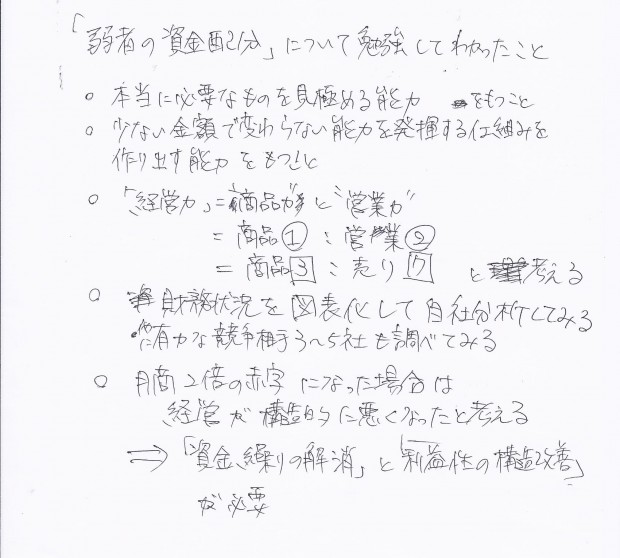 「弱者の資金配分」について勉強してわかったこと
○ 本当に必要なものを見極める能力 をもつこと
○ 少ない金額で変わらない能力を発揮する仕組みを
作り出す能力をもつこと
○ 「経営力」=商品力と営業力
= 商品① : 営業②
= 商品3 : 売り7 と考える
○ 財務状況を図表化して自社分析してみる
・有力な競争相手3~5社も調べてみる
○ 月商2倍の赤字になった場合は
経営が構造的に悪くなったと考える
⇒ 「資金繰りの解消」と「利益性の構造改善」
が必要